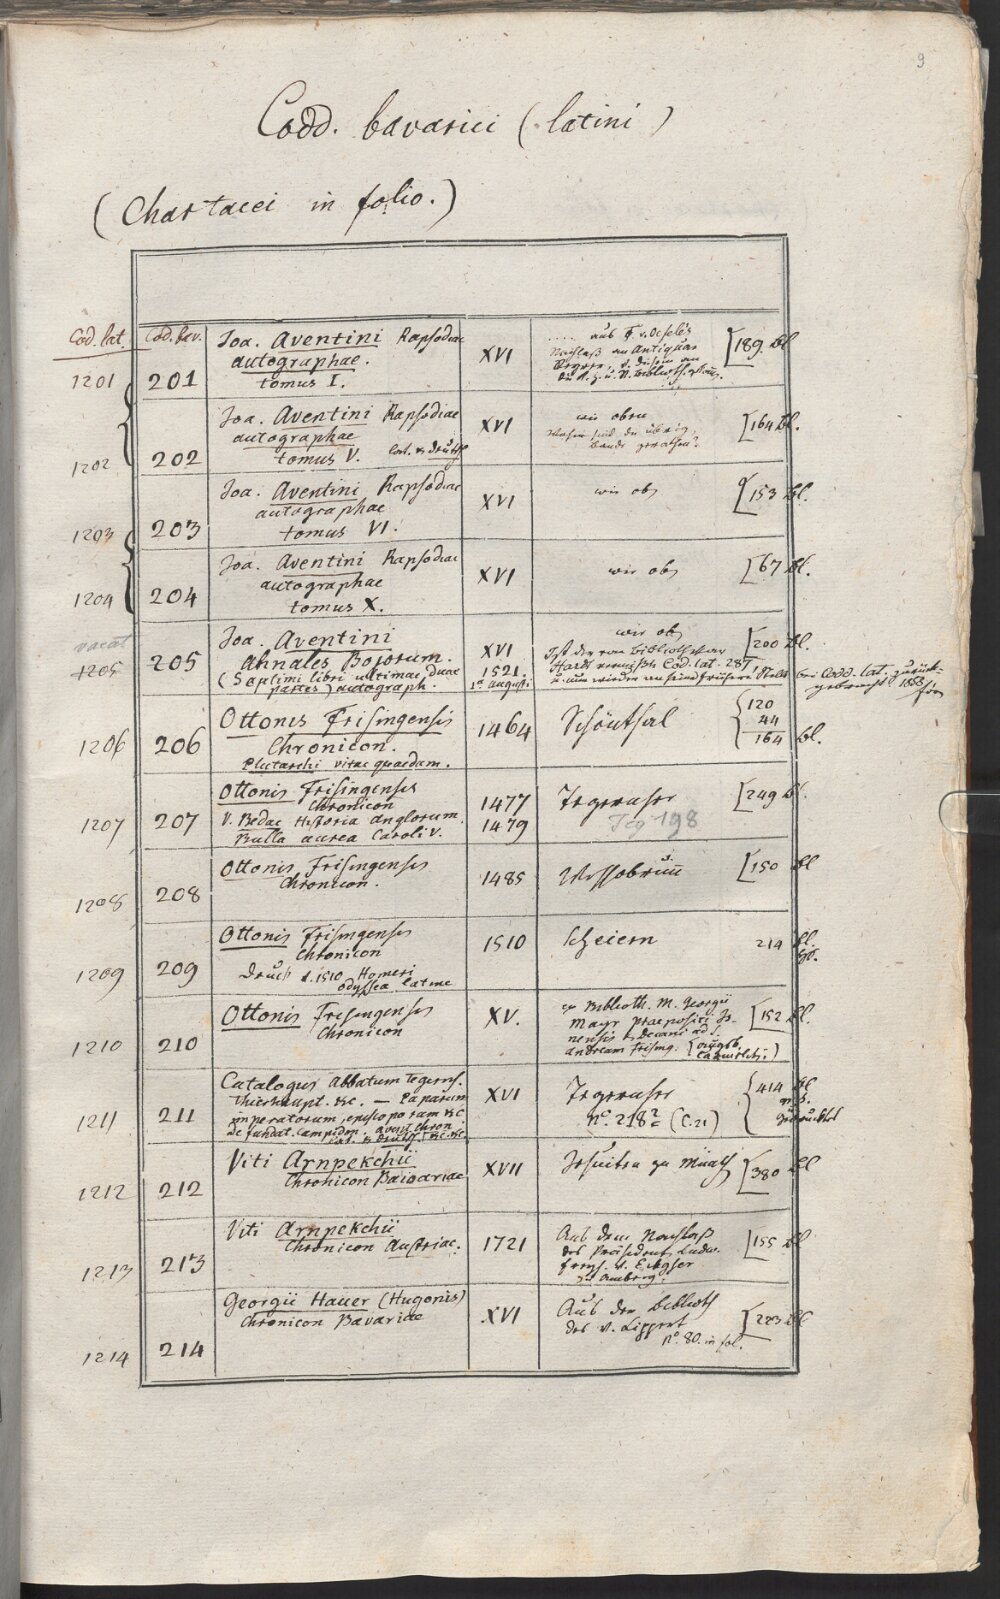 9
Codd. bavarici (latini)
(Chartacei in folio.)
Cod. lat. Cod. bav.
1201 201 Joa. Aventini Rapsodiae
autographae.
tomus I.
XVI
.... aus F. v. Oefele's
Nachlaß an Antiquar
[189 Bl
1202 202 Joa. Aventini Rapsodiae
autographae
tomus V. lat. & deutsch
XVI
wie oben
Wohin sind die übrig.
Bände gerathen?
[164 Bl.
1203 203 Joa. Aventini Rapsodiae
autographae
tomus VI.
XVI
wie ob
[153 Bl.
1204 204 Joa. Aventini Rapsodiae
autographae
tomus X.
XVI
wie ob
[67 Bl.
vacat
1205 205 Joa. Aventini
Annales Bojorum.
(Septimi libri ultimae duae
partes) autograph.
XVI
1521.
1º augusti
wie ob
[200 Bl.
Ist der von Bibliothekar
Hardt vermißte Cod. lat. 287,
u. nun wieder an seine frühere Stelle bei Codd. lat. zurück-
gebracht 1853
1206 206 Ottonis Frisingensis
Chronicon.
Plutarchi vitae quaedam.
1464
Schönthal
{120
44
164 Bl.
1207 207 Ottonis Frisingensis
Chronicon
V. Bedae Historia anglorum
Bulla aurea Caroli V.
1477
1479
Tegernsee
Teg 198
[249 Bl.
1208 208 Ottonis Frisingensis
Chronicon.
1485
Wessobrunn
[150 Bl
1209 209 Ottonis Frisingensis
Chronicon
Druck v. 1510 Homeri
odyssea latine
1510
Scheiern
214 Bl.
1210 210 Ottonis Frisingensis
Chronicon
XV.
ex Biblioth. M. Georgii
Mayr praepositi Is-
nensis & Decani ad S.
andream Frising.
[152 Bl.
1211 211 Catalogus Abbatum Tegerns.
Thierhaupt. &c. — Paparum
imperatorum, episcoporum &c
de fundat. Campidon. avent. chron.
lat. & deutsch &c. &c.
XVI
Tegernsee
nº. 218 2 (C. 21)
{414 Bl
gedruckt
1212 212 Viti Arnpekchii
Chronicon Baioariae
XVII
Jesuiten zu Münch
[380 Bl
1213 213 Viti Arnpekchii
Chronicon Austriae.
1721
Aus dem Nachlaß
des Präsident Ludw.
zu Amberg.
[155 Bl
1214 214 Georgii Hauer (Hugonis)
Chronicon Bavariae
XVI
Aus der Biblioth
des v. Lippert
nº. 80. in fol.
[223 Bl